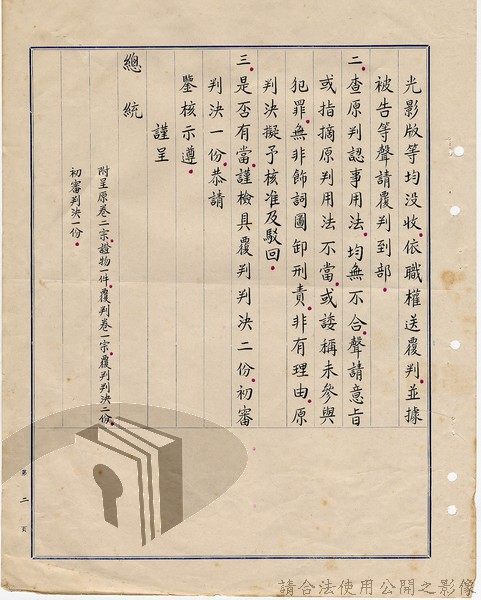 光影版等均沒收。依職權送覆判。並據
被告等聲請覆判到部。
二、查原判認事用法。均無不合。聲請意旨
或指摘原判用法不當。或諉稱未參與
犯罪。無非飾詞圖卸刑責。非有理由。原
判決擬予核准及駁回。
三、是否有當。謹檢具覆判判決二份。初審
判決一份。恭請
鑒核示遵。
謹呈
總統
附呈原卷二宗。證物一件。覆判卷一宗。覆判判決二份。
初審判決一份。
第二頁
請合法使用公開之影像